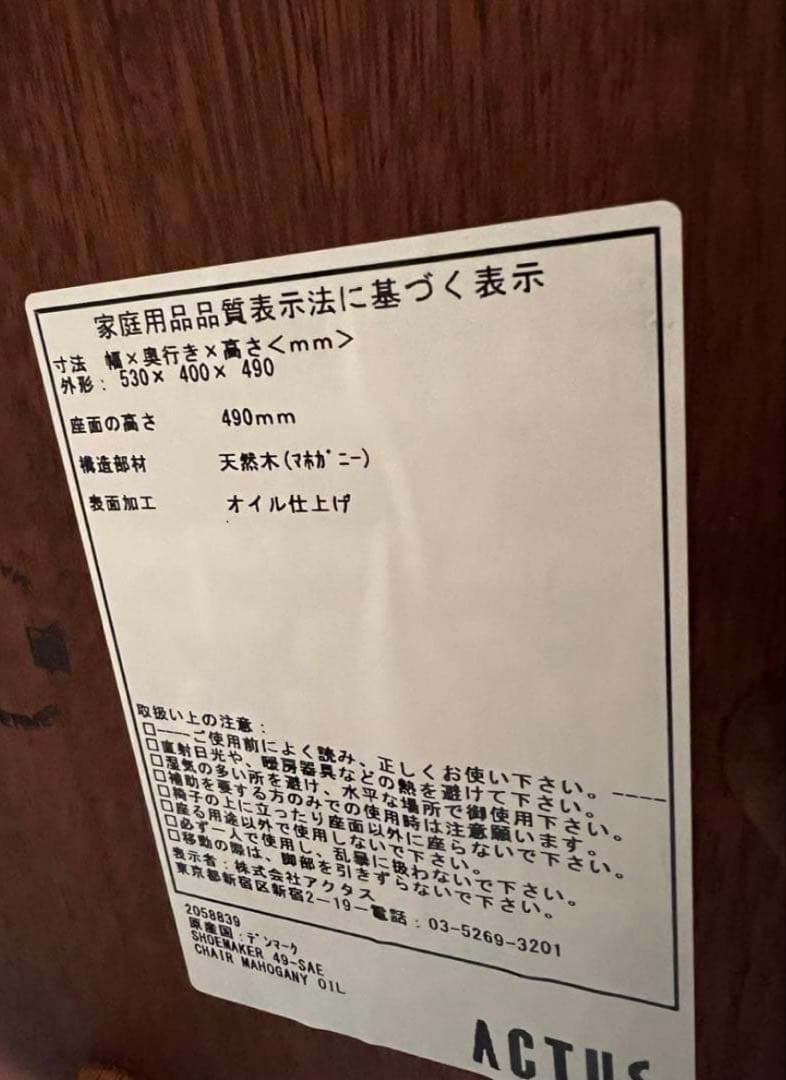 家庭用品品質表示法に基づく表示
寸法 幅×奥行き×高さ<mm>
外形: 530× 400× 490
座面の高さ 490mm
構造部材 天然木(ﾏﾎｶﾞﾆｰ)
表面加工 オイル仕上げ
取扱い上の注意:
□----ご使用前によく読み、正しくお使い下さい。----
□直射日光や、暖房器具などの熱を避けて下さい。
□湿気の多い所を避け、水平な場所で御使用下さい。
□補助を要する方のみでの使用時は注意願います。
□椅子の上に立ったり座面以外に座らないで下さい。
□座る用途以外で使用しないで下さい。
□必ず一人で使用し、乱暴に扱わないで下さい。
□移動の際は、脚部を引きずらないで下さい。
表示者:株式会社アクタス
東京都新宿区新宿2-19-電話:03-5269-3201
2058839
原産国:ﾃﾞﾝﾏｰｸ
SHOEMAKER 49-SAE
CHAIR MAHOGANY OIL
ACTUS